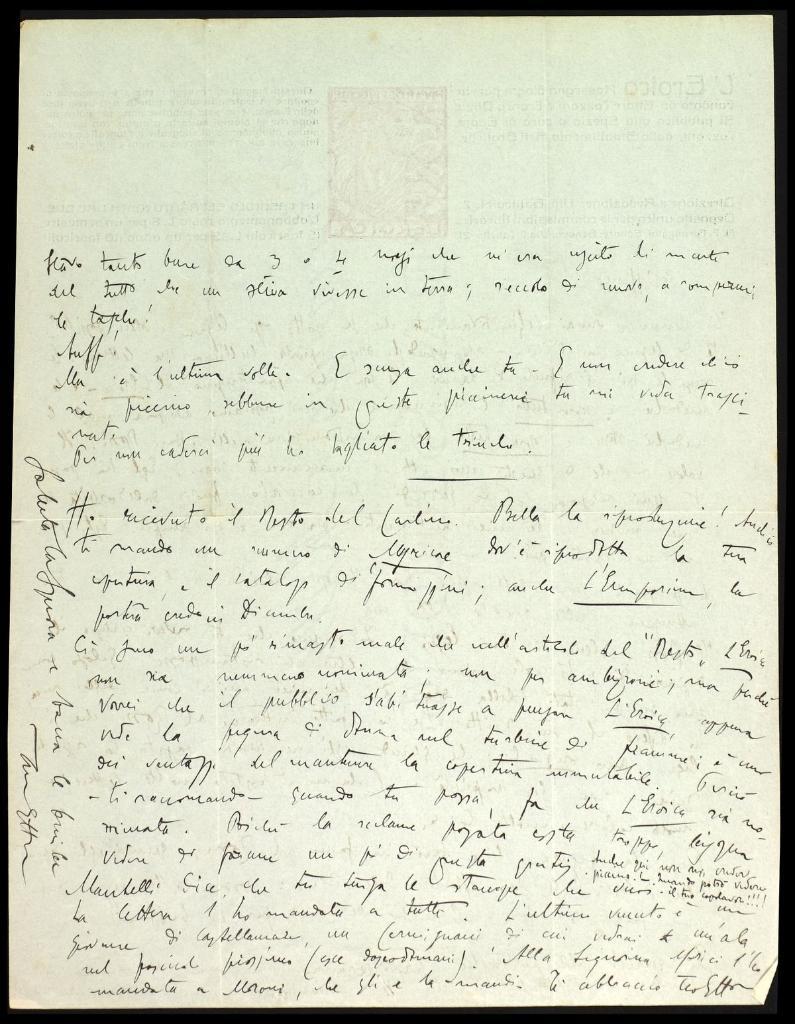 Stavo tanto bene da 3 o 4 mesi che m'ero uscito di mente
del tutto che un vivesse in terra; eccolo di nuovo, a
le
Auff!
Ma è l'ultima volta. E senza anche tu. E non credere ch'io
sia piccino sebbene in queste piccinerie tu mi veda trasci-
nato.
Per non caderci più ho tagliato le
Ho ricevuto il Resto del Carlino. Bella la riproduzione! Anch'io
ti mando un numero di dov'è riprodotta la tua
copertina, e il catalogo di Formiggini; anche L'Emporium, la
porterà credo in Dicembre.
Ci sono un po' rimasto male che nell'articolo del "Resto" L'Eroica
non sia nemmeno nominata; non per ambizione, ma perché
vorrei che il pubblico s'abituasse a pensare L'Eroica, appena
vede la figura di donna nel turbine di fiamme; è uno
dei vantaggi del mantenere la copertina immutabile. Perciò
- ti raccomando - quando tu possa, fa che L'Eroica sia no-
minata. Poiché la reclame pagata costa troppo, bisogna
vedere di farne un po' di questa gratis.
Anche qui non mi vedere
piccino! - Quando potrò vedere
il tuo capolavoro!!!
Mantelli dice che tu tenga le stampe che vuoi.
La lettera l'ho mandata a tutti. L'ultimo venuto è un
giovane di Castellamare, un di cui vedrai un'ala
nel fascicolo prossimo (esce dopodomani). Alla Signorina l'ho
mandata a Moroni, che gli e la mandi. Ti abbraccio tuo Ettore
Saluta la Signora e bacia le bimbe
Tuo Ettore